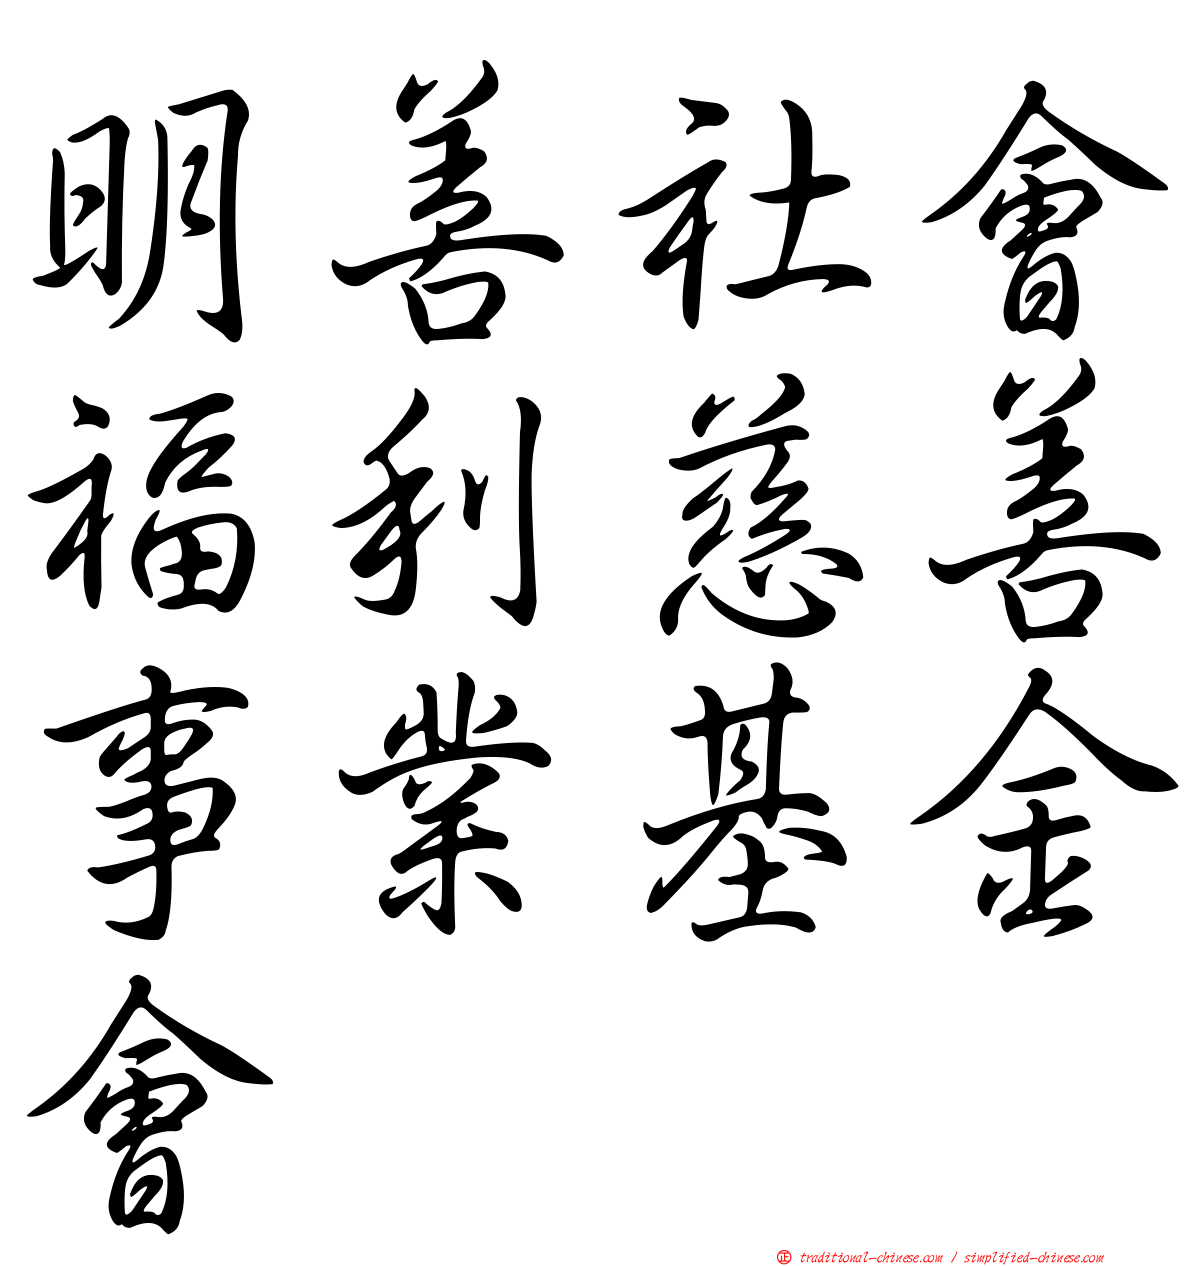 明善社會
福利慈善
事業基金
會
㊣ traditional-chinese.com / simplified-chinese.com